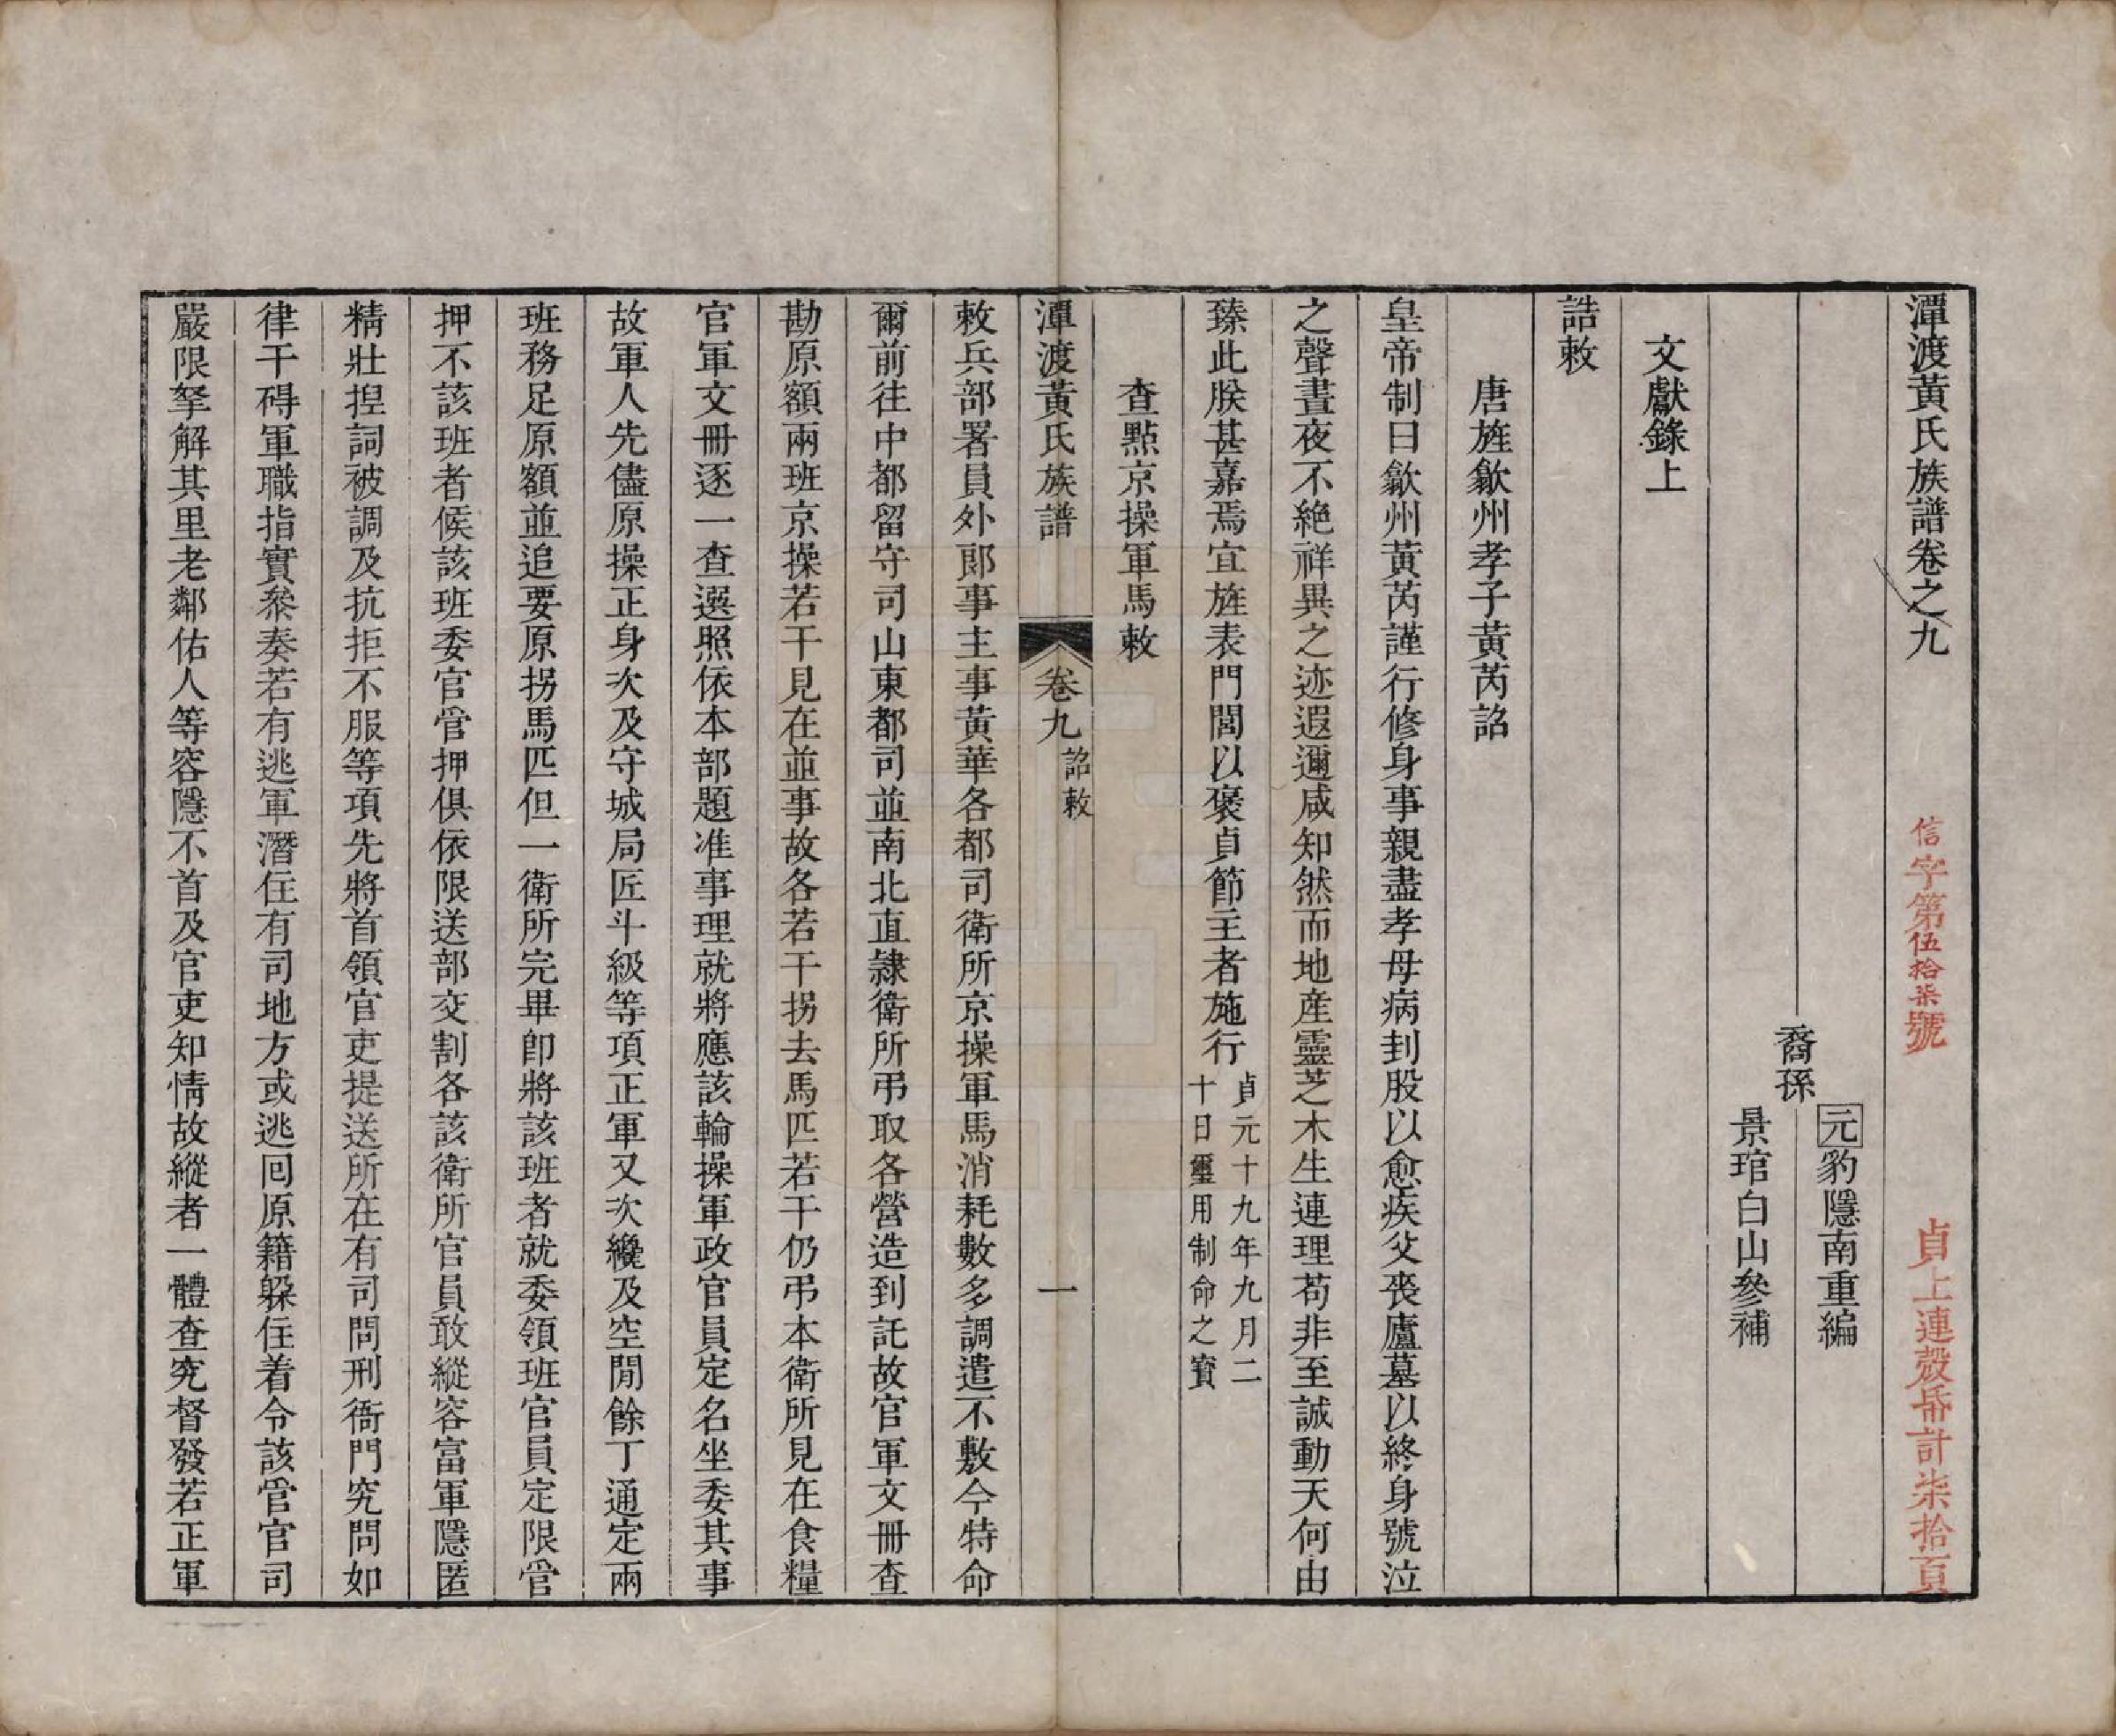 潭渡黃氏族譜卷之九
信字第伍拾柒號
貞上連殼帋計柒拾頁
裔孫
元豹隱南重編
景琯白山參補
文獻錄上
誥敕
唐旌歙州孝子黃芮詔
皇帝制曰歙州黃芮謹行修身事親盡孝母病刲股以愈疾父喪廬墓以終身號泣
之聲晝夜不絶祥異之迹遐邇咸知然而地産靈芝木生連理苟非至誠動天何由
臻此朕甚嘉焉宜旌表門閭以褒貞節主者施行
貞元十九年九月二
十日璽用制命之寶
查㸃京操軍馬敕
潭渡黃氏族譜
卷九
詔敕
一
敕兵部署員外郎事主事黃華各都司衛所京操軍馬消耗數多調遣不敷今特命
爾前往中都留守司山東都司並南北直隸衛所弔取各營造到註故官軍文冊查
勘原額兩班京操若干見在並事故各若干拐去馬匹若干仍弔本衛所見在食糧
官軍文冊逐一查選照依本部題准事理就將應該輪操軍政官員定名坐委其事
故軍人先儘原操正身次及守城局匠斗級等項正軍又次纔及空閒餘丁通定兩
班務足原額並追要原拐馬匹但一衛所完畢卽將該班者就委領班官員定限管
押不該班者候該班委官管押俱依限送部交割各該衛所官員敢縱容富軍隱匿
精壯揑詞被調及抗拒不服等項先將首領官吏提送所在有司問刑衙門究問如
律干碍軍職指實叅奏若有逃軍潛住有司地方或逃回原籍躲住着令該管官司
嚴限拏解其里老鄰佑人等容隱不首及官吏知情故縱者一體查究督發若正軍